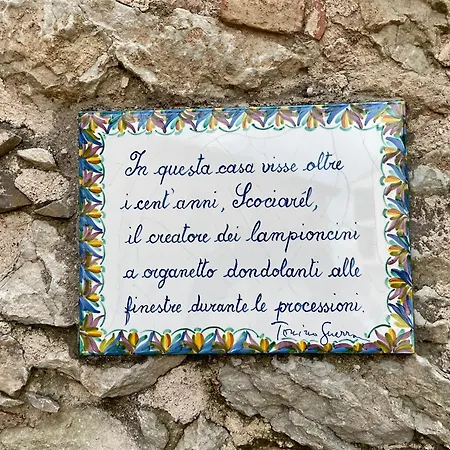 In questa casa visse oltre
i cent'anni, Scociarél,
il creatore dei lampioncini
a organetto dondolanti alle
finestre durante le processioni.
Tonino Guerra